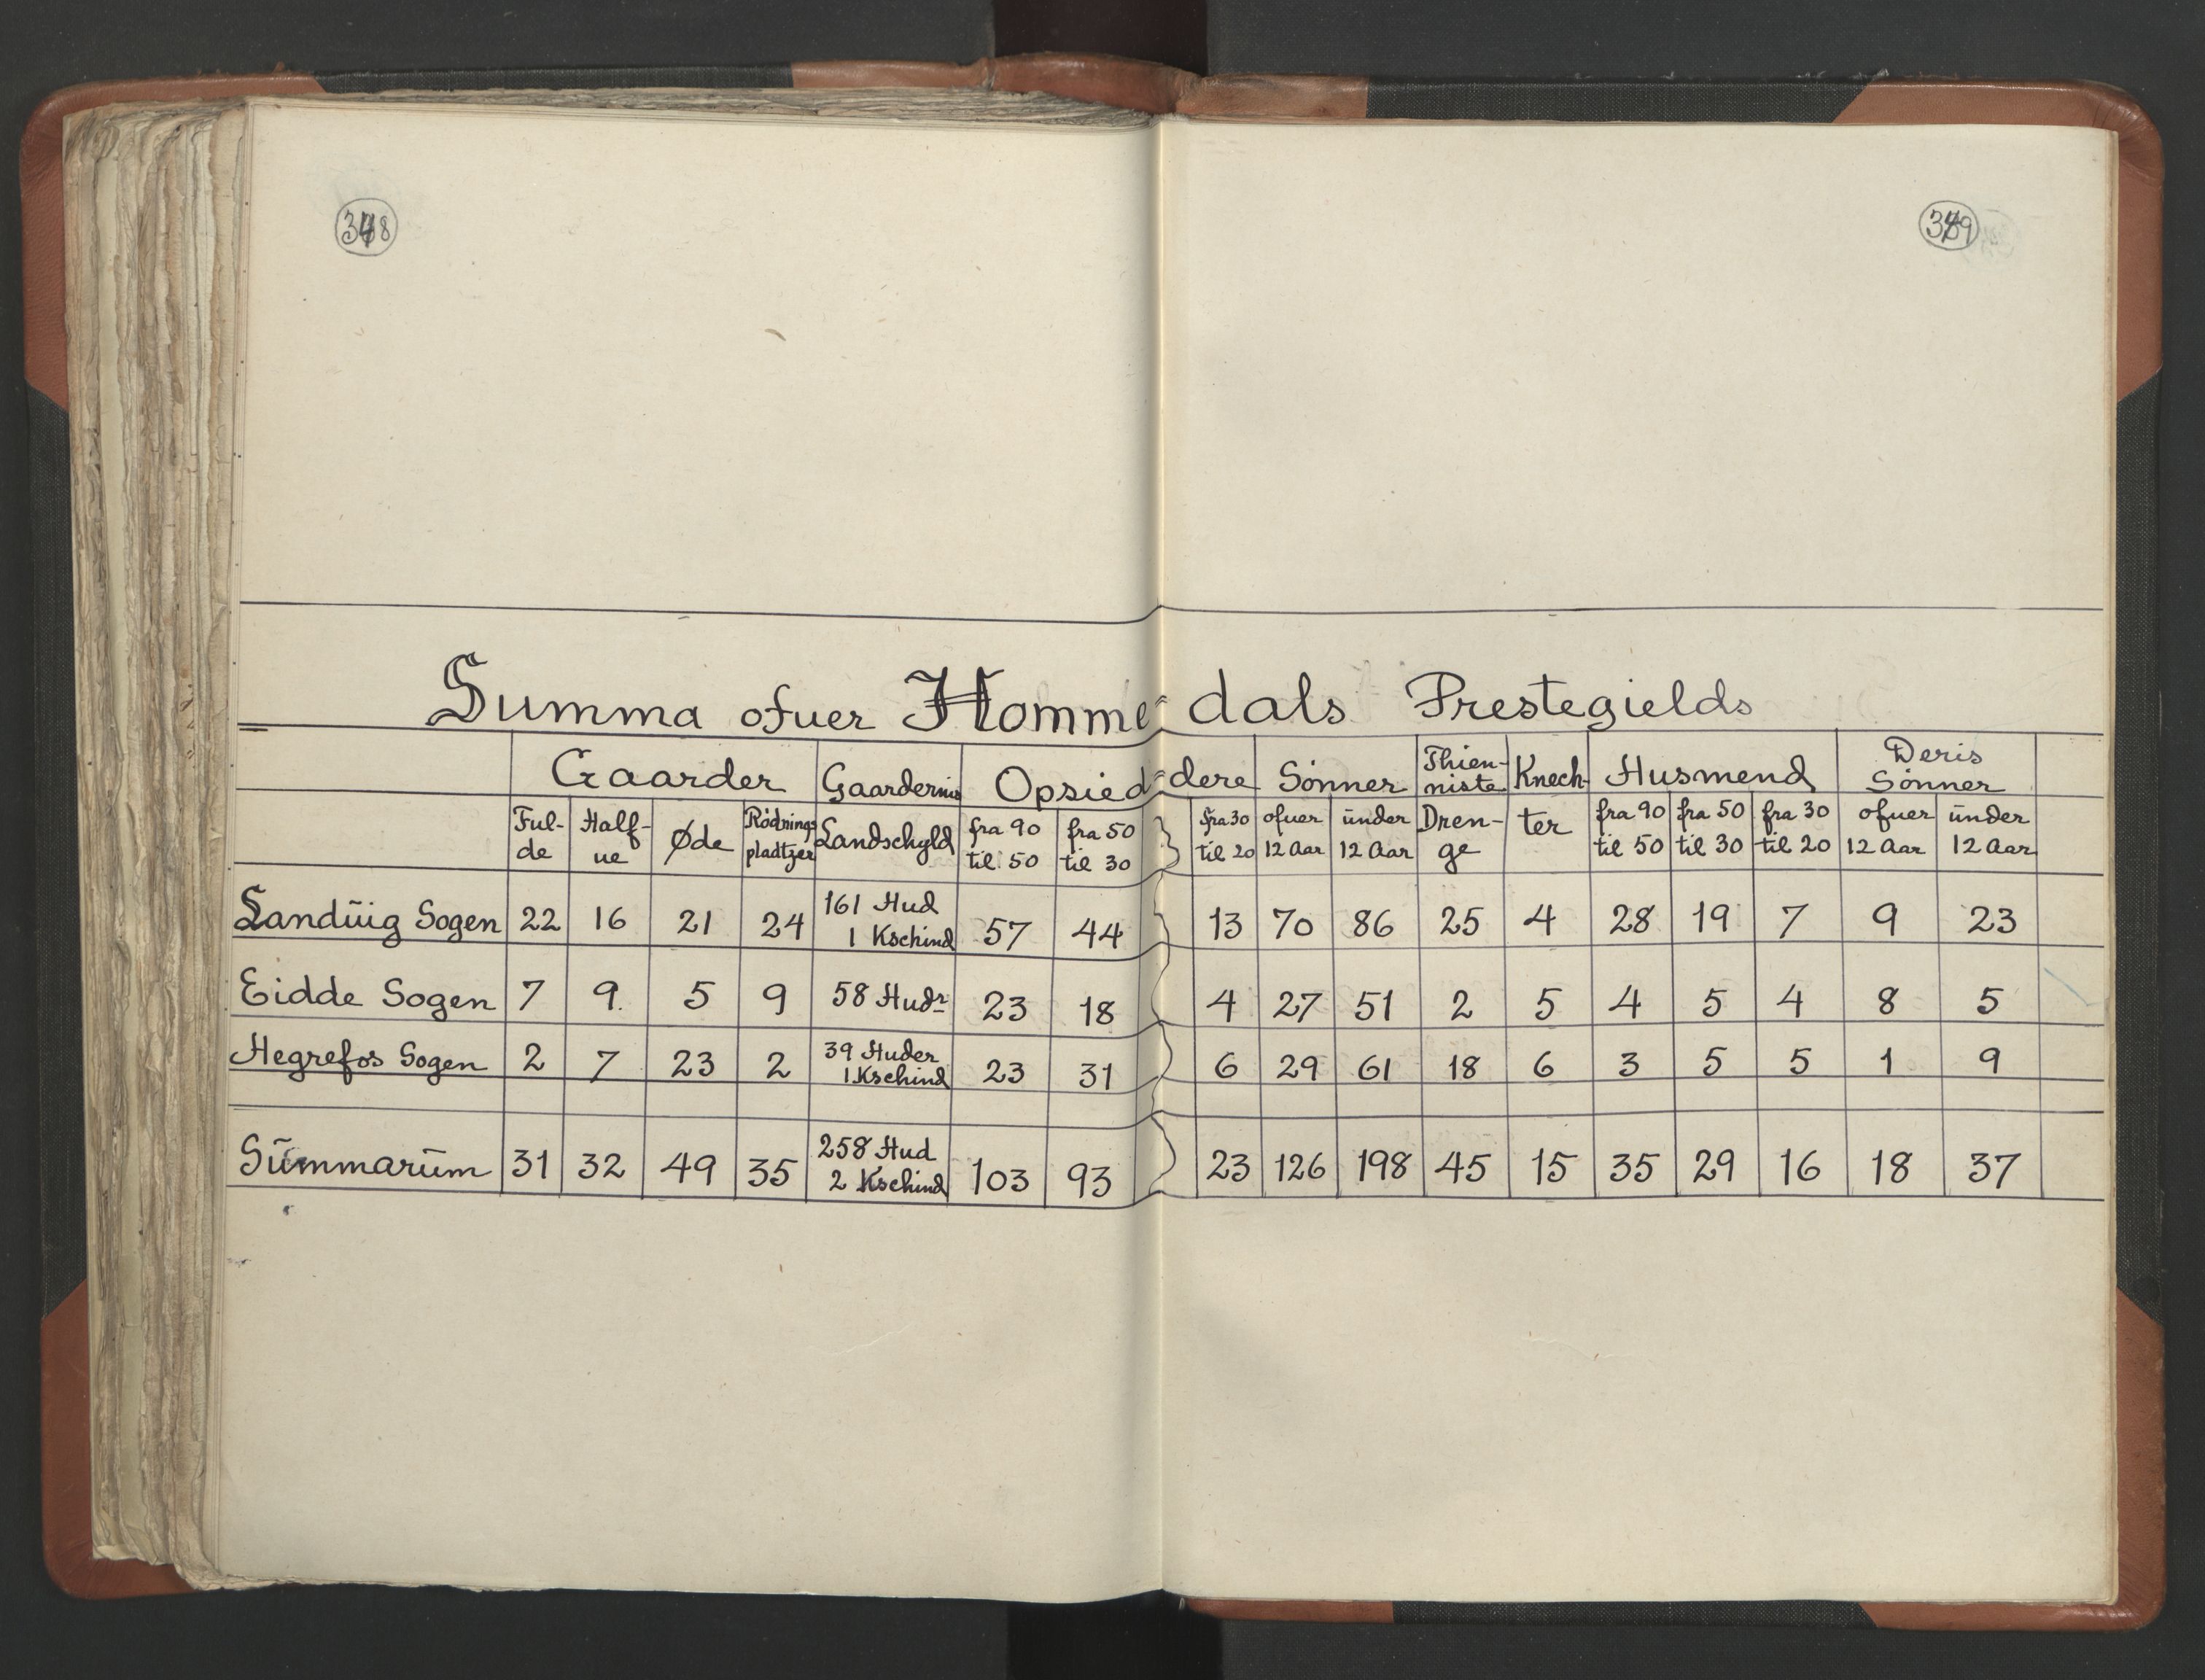 348 379
Summa ofuer Homme-dals Prestegields
Gaarder Gaardernis Opsied-dere Sönner Thien-niste Knech- Husmend Deris Sönner
Ful-de Half-ue Øde Rödnings pladtzer Landschyld fra 90 til 50 fra 50 til 30 fra 30 til 20 ofuer 12 Aar ünder 12 Aar Dren-ge ter fra 90 til 50 fra 50 til 30 fra 30 til 20 ofuer 12 Aar ünder 12 Aar
Landüig Sogen 22 16 21 24 161 Hud 1 Kschind 57 44 13 70 86 25 4 28 19 7 9 23
Eidde Sogen 7 9. 5 9 58 Hudr 23 18 4 27 51 2 5 4 5 4 8 5
Hegrefos Sogen 2 7 23 2 39 Huder 1 Kschind 23 31 6 29 61 18 6 3 5 5 1 9
Summarüm 31 32 49 35 258 Hud 2 Kschind 103 93 23 126 198 45 15 35 29 16 18 37